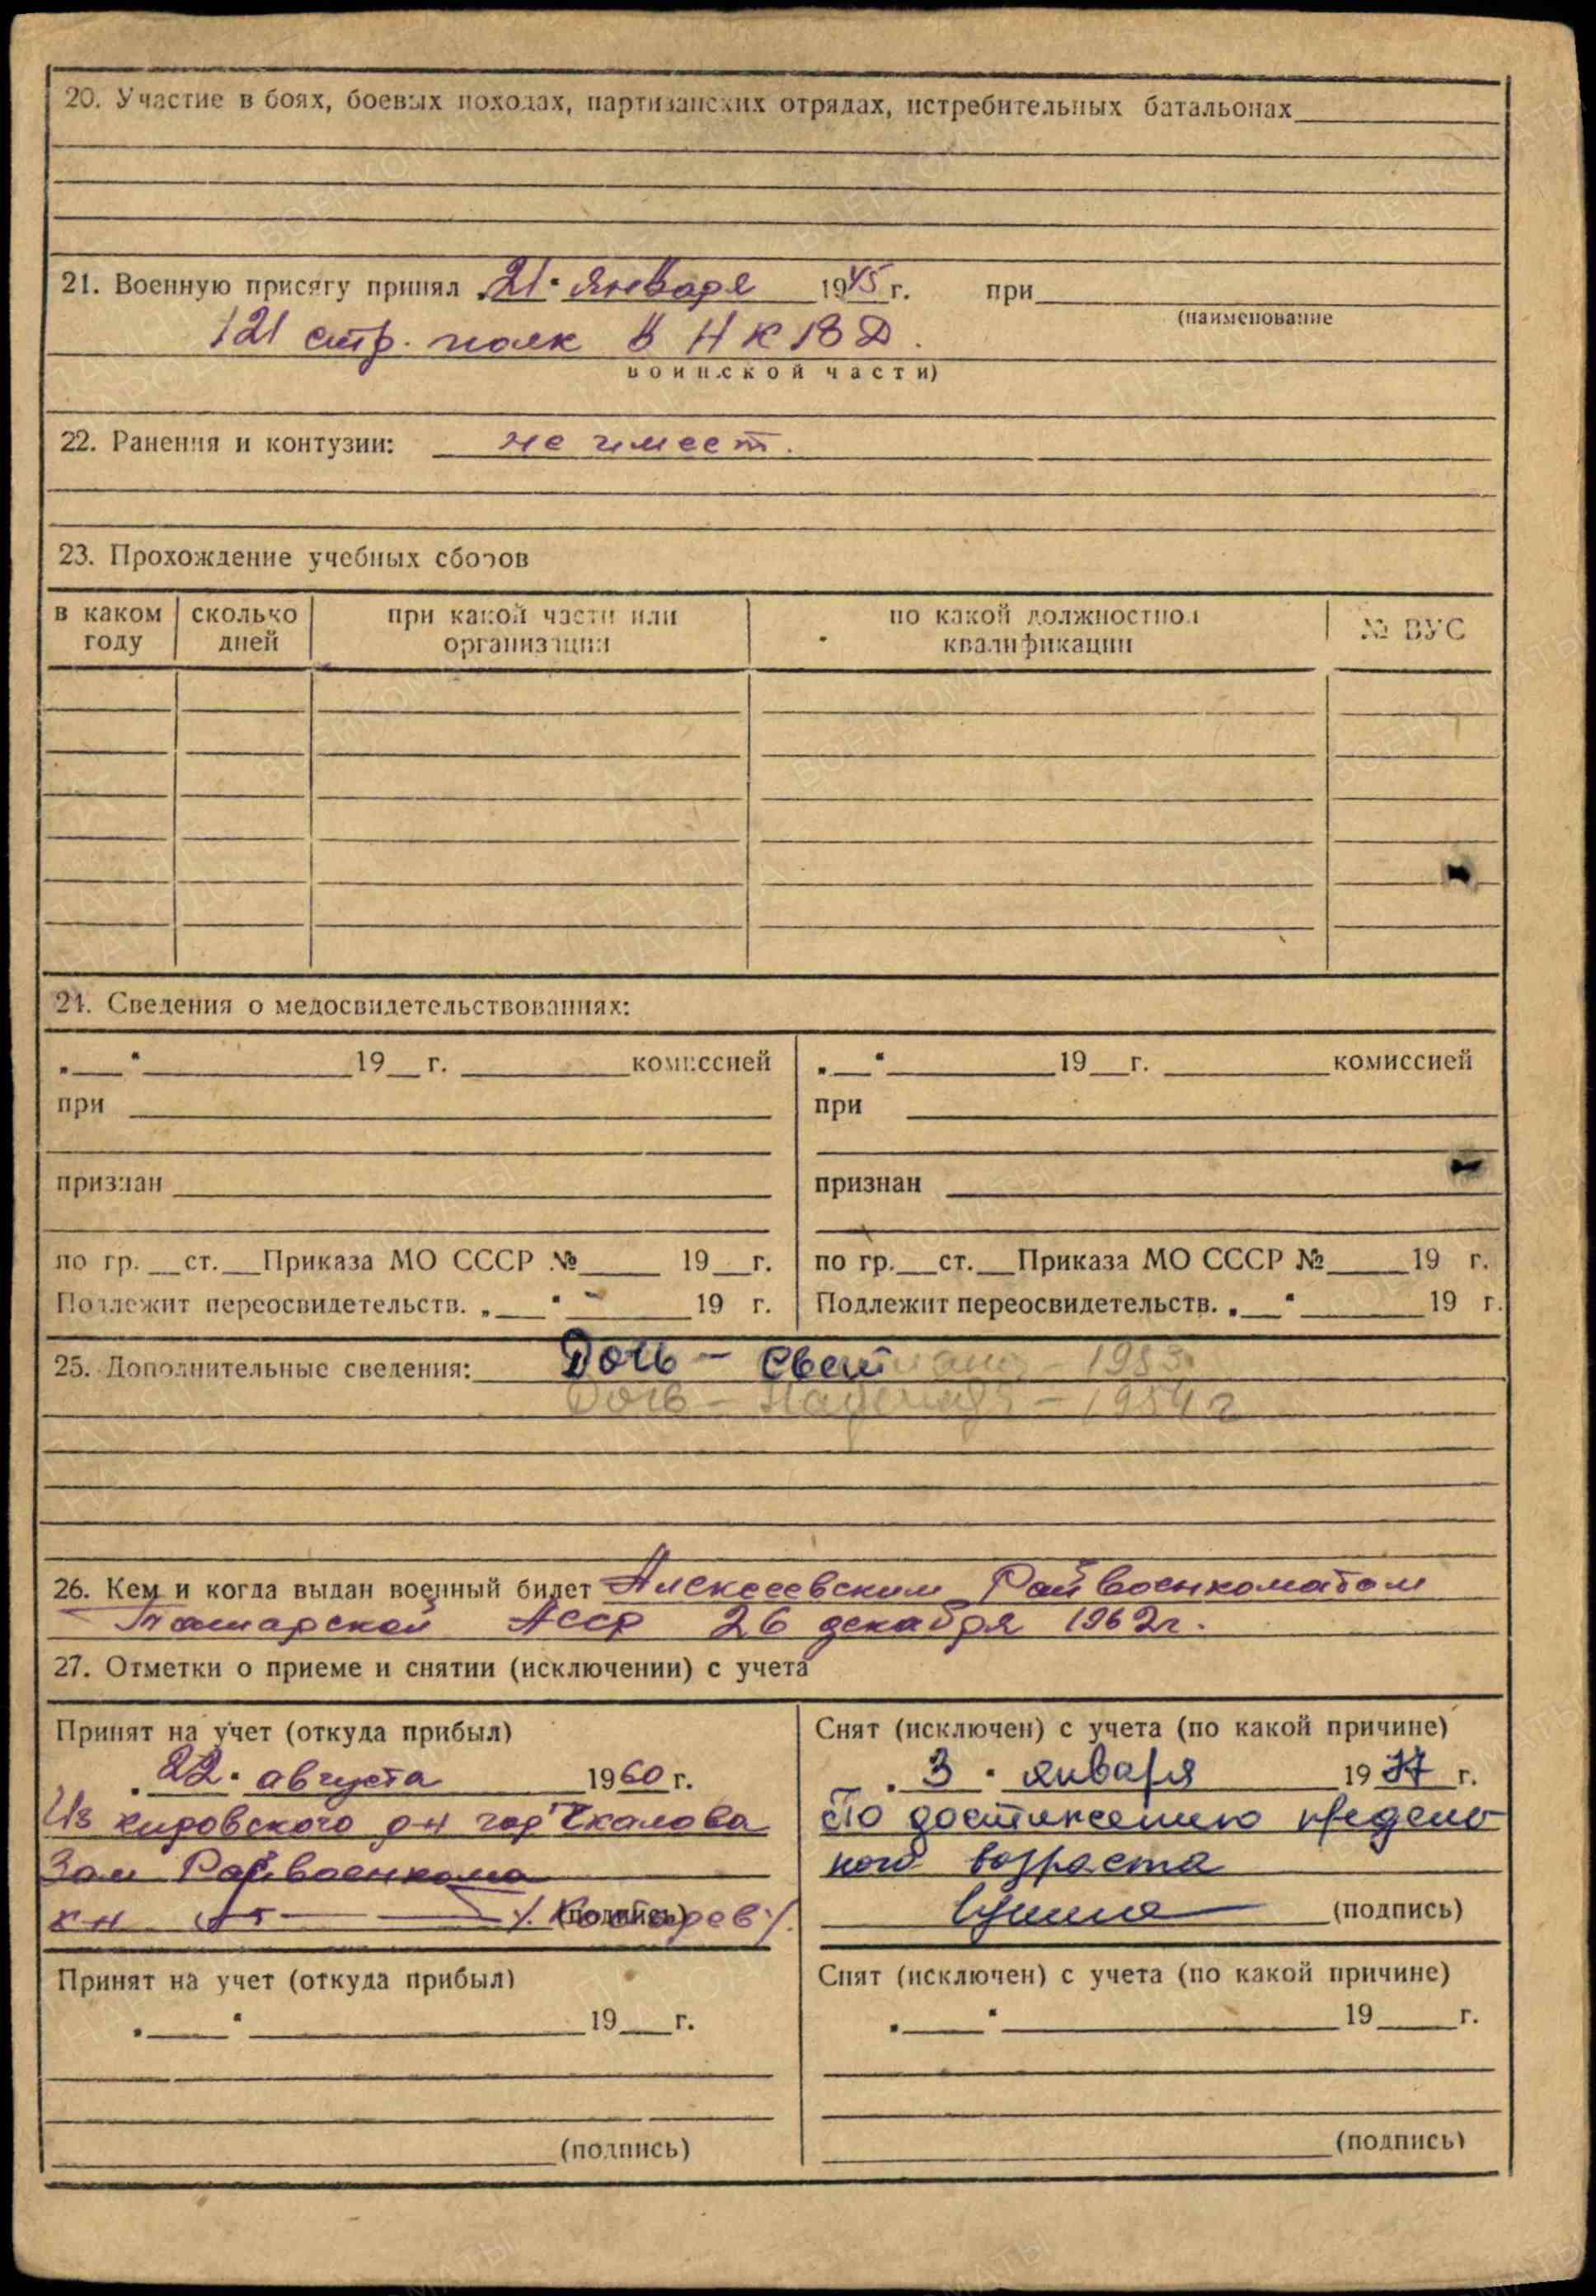 20. Участие в боях, боевых походах, партизанских отрядах, истребительных батальонах
21. Военную присягу принял „21“ января 1945 г. при
(наименование
121 стр. полк В НКВД.
воинской части)
22. Ранения и контузии: не имеет.
23. Прохождение учебных сборов
в каком году
сколько дней
при какой части или организации
по какой должностной квалификации
№ ВУС
24. Сведения о медосвидетельствованиях:
„ “ 19 г. комиссией
при
признан
по гр. ст. Приказа МО СССР № 19 г.
Подлежит переосвидетельств. „ “ 19 г.
„ “ 19 г. комиссией
при
признан
по гр. ст. Приказа МО СССР № 19 г.
Подлежит переосвидетельств. „ “ 19 г.
25. Дополнительные сведения: Дочь - Светлана - 1953
Дочь - Надежда - 1954 г
26. Кем и когда выдан военный билет Алексеевским Райвоенкоматом
Татарской АССР 26 декабря 1962г.
27. Отметки о приеме и снятии (исключении) с учета
Принят на учет (откуда прибыл)
„22“ августа 1960 г.
Из кировского р-н гор Чкалова
Зам Райвоенкома
(подпись)
Снят (исключен) с учета (по какой причине)
„3“ января 1977 г.
По достижению предель-
ного возраста
(подпись)
Принят на учет (откуда прибыл)
„ “ 19 г.
(подпись)
Снят (исключен) с учета (по какой причине)
„ “ 19 г.
(подпись)